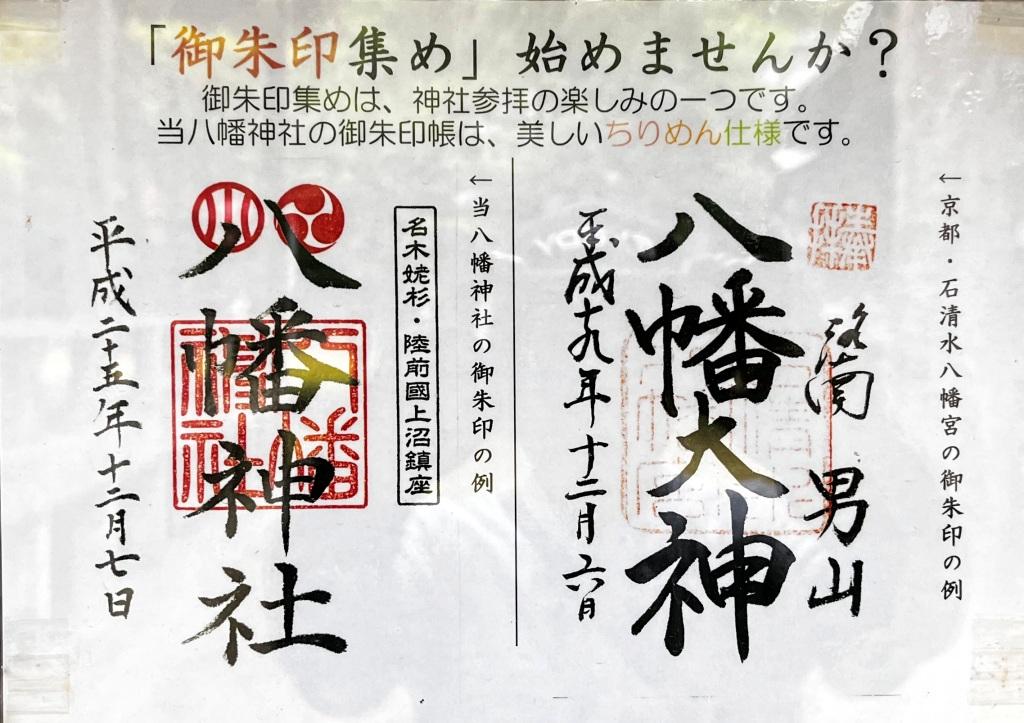 「御朱印集め」始めませんか？
御朱印集めは、神社参拝の楽しみの一つです。
当八幡神社の御朱印帳は、美しいちりめん仕様です。
←京都・石清水八幡宮の御朱印の例
洛南 男山
八幡大神
平成十九年十二月六日
←当八幡神社の御朱印の例
名木姥杉・陸前國上沼鎮座
八幡神社
八幡神社
平成二十五年十二月七日